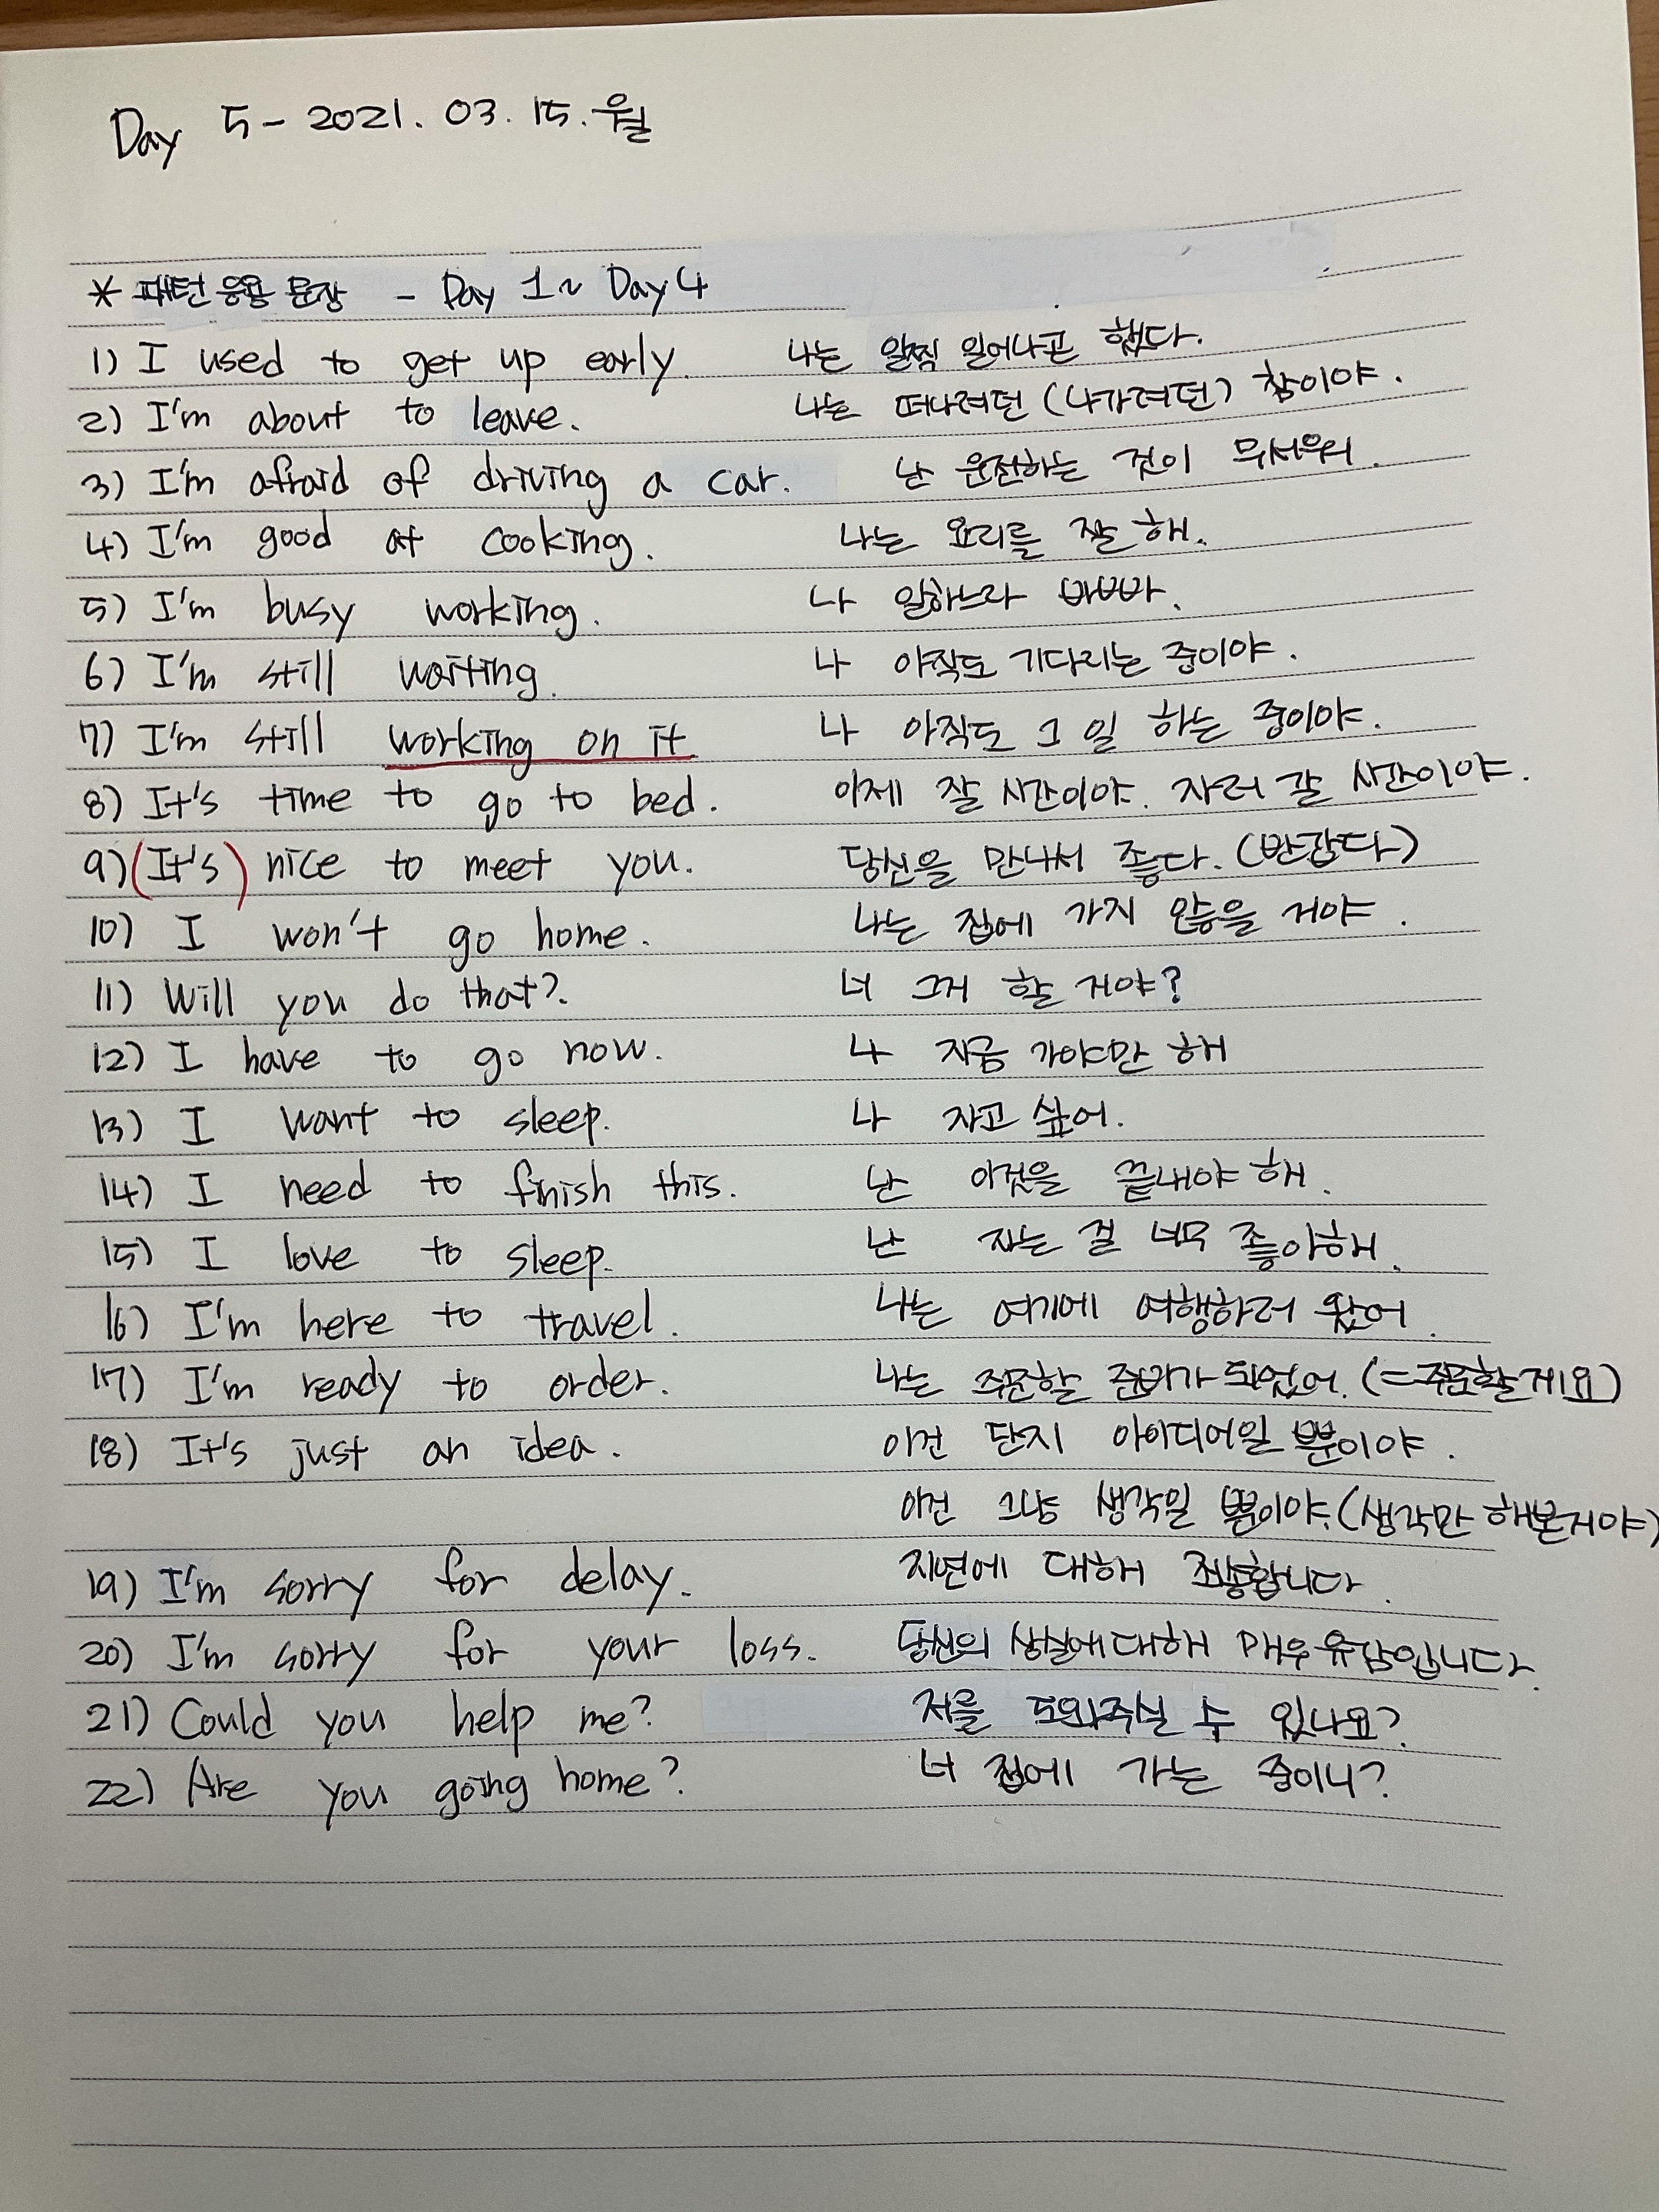 Day 5 - 2021. 03. 15. 월
* 패턴 응용 문장 - Day 1 ~ Day 4
1) I used to get up early. 나는 일찍 일어나곤 했다.
2) I'm about to leave. 나는 떠나려던 (나가려던) 참이야.
3) I'm afraid of driving a car. 난 운전하는 것이 무서워.
4) I'm good at cooking. 나는 요리를 잘 해.
5) I'm busy working. 나 일하느라 바빠.
6) I'm still waiting. 나 아직도 기다리는 중이야.
7) I'm still working on it 나 아직도 그 일 하는 중이야.
8) It's time to go to bed. 이제 잘 시간이야. 자러 갈 시간이야.
9) (It's) nice to meet you. 당신을 만나서 좋다. (반갑다)
10) I won't go home. 나는 집에 가지 않을 거야.
11) Will you do that? 너 그거 할 거야?
12) I have to go now. 나 지금 가야만 해
13) I want to sleep. 나 자고 싶어.
14) I need to finish this. 난 이것을 끝내야 해.
15) I love to sleep. 난 자는 걸 너무 좋아해.
16) I'm here to travel. 나는 여기에 여행하러 왔어.
17) I'm ready to order. 나는 주문할 준비가 되었어. (=주문할게요)
18) It's just an idea. 이건 단지 아이디어일 뿐이야.
이건 그냥 생각일 뿐이야. (생각만 해본거야)
19) I'm sorry for delay. 지연에 대해 죄송합니다.
20) I'm sorry for your loss. 당신의 상실에 대해 매우 유감입니다.
21) Could you help me? 저를 도와주실 수 있나요?
22) Are you going home? 너 집에 가는 중이니?